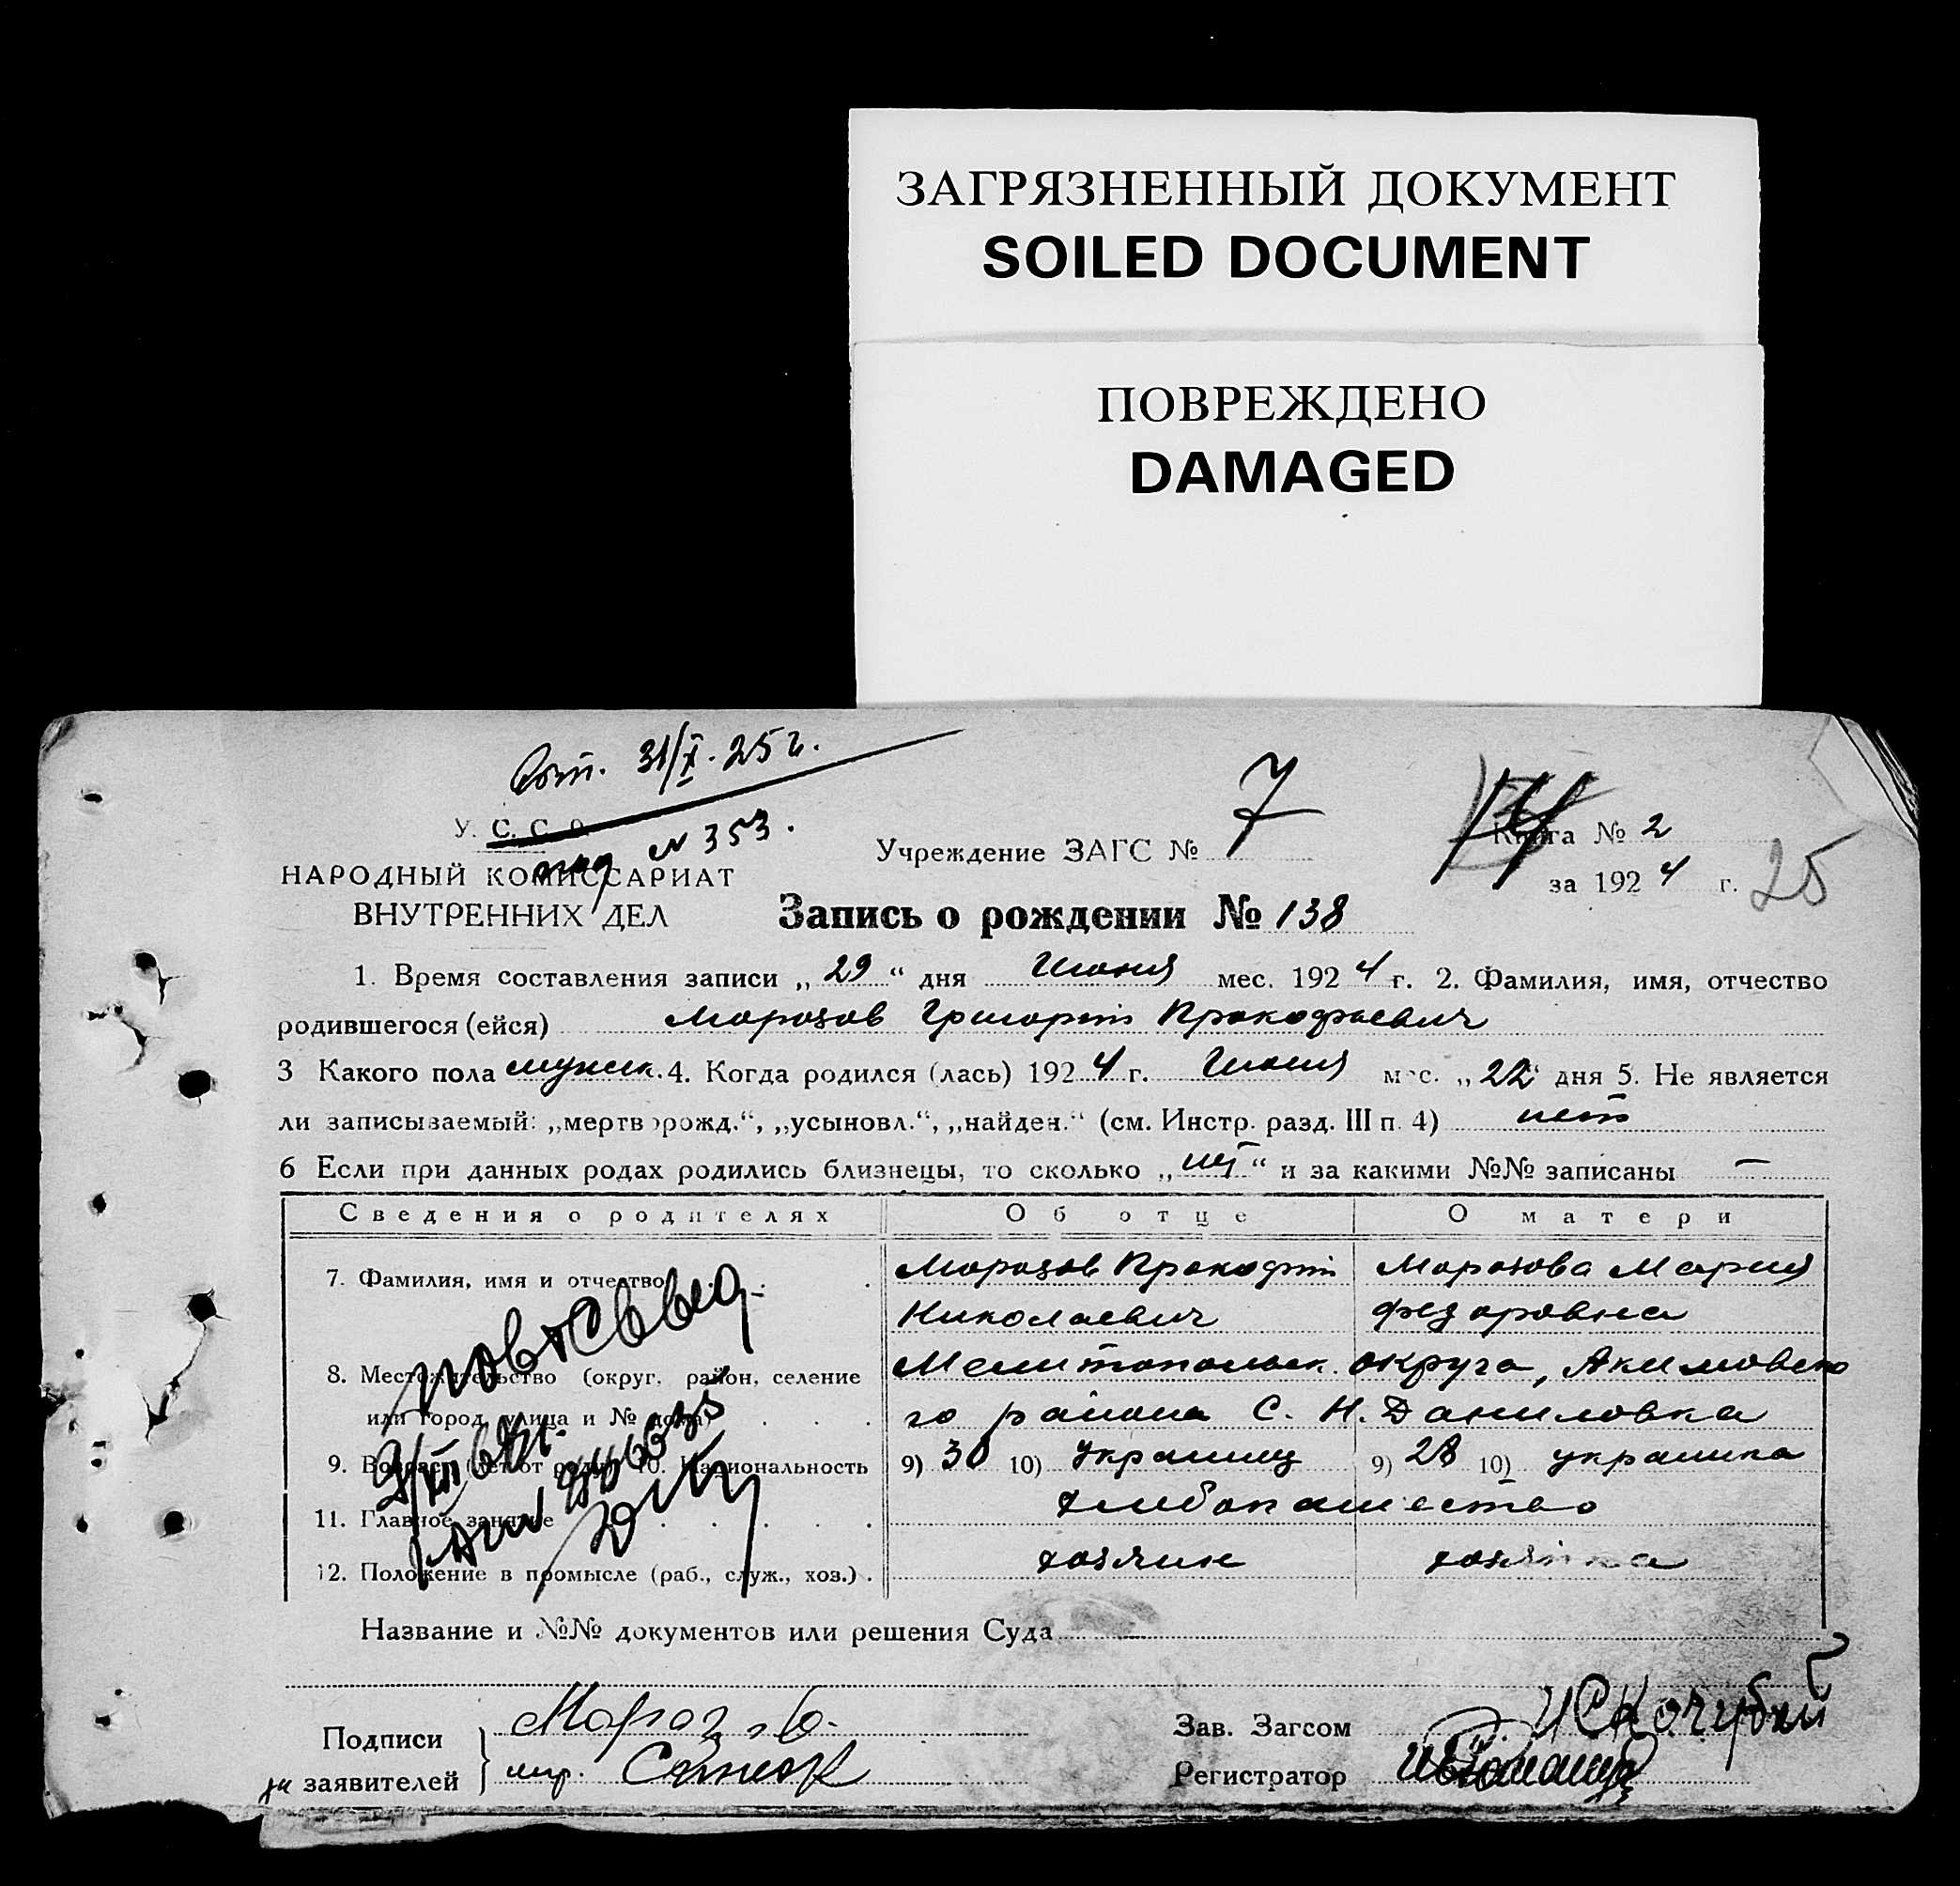 ЗАГРЯЗНЕННЫЙ ДОКУМЕНТ
SOILED DOCUMENT
ПОВРЕЖДЕНО
DAMAGED
31/X. 25 г.
У. С. С. Р.
N 353.
Учреждение ЗАГС № 7
Книга № 2
НАРОДНЫЙ КОМИССАРИАТ
за 1924 г. 25
ВНУТРЕННИХ ДЕЛ
Запись о рождении № 138
1. Время составления записи „29“ дня Июня мес. 1924 г. 2. Фамилия, имя, отчество
родившегося (ейся) Морозов Григорий Прокофьевич
3 Какого пола мужск. 4. Когда родился (лась) 1924 г. Июня мес. „22“ дня 5. Не является
ли записываемый: „мертворожд.“, „усыновл.“, „найден.“ (см. Инстр. разд. III п. 4) нет
6 Если при данных родах родились близнецы, то сколько „ “ и за какими №№ записаны —
Сведения о родителях Об отце О матери
7. Фамилия, имя и отчество Морозов Прокофий Морозова Мария
Николаевич Федоровна
8. Местожительство (округ, район, селение Мелитопольск. округа, Акимовско
или город, улица и № дома) го района С. Н. Даниловка
9. Возраст (лет от роду) 10. Национальность 9) 30 10) Украинец 9) 28 10) украинка
11. Главное занятие хлебопашество
12. Положение в промысле (раб., служ., хоз.) хозяин хозяйка
Название и №№ документов или решения Суда
Подписи Мороз
за заявителей
Зав. Загсом Кочубей
Регистратор